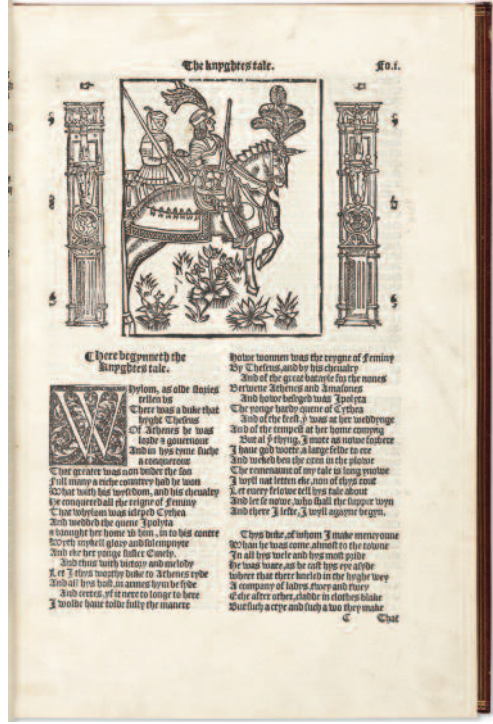 The knyghtes tale.
Fo.i.
Here begynneth the
knyghtes tale.
Whylom, as olde stories
tellen us
There was a duke that
hyght Theseus
Of Athenes he was
lorde & gouernour
And in hys tyme suche
a conquerour
That greater was non under the son
Full many a riche countrey had he won
What with his wysdom, and his cheualry
He conquered all the reigne of feminy
That whylom was icleped Cythea
And wedded the quene Ipolyta
& brought her home w̄ hem, in to his contre
Wyth mykell glory and solempnyte
And eke her yonge suster Emely.
And thus with victory and melody
Let I thys worthy duke to Athenes ryde
And all hys host, in armes hym besyde
And certes, yf it nere to longe to here
I wolde haue tolde fully the manere
Howe wonnen was the reygne of Feminy
By Theseus, and by his cheualry
And of the great batayle for the nones
Betwene Athenes and Amasones
And howe beseged was Ipolyta
The yonge hardy quene of Cythea
And of the feest, ẏ was at her weddynge
And of the tempest at her home comyng
But al ẏ thyng, I mote as nowe forbere
I haue god wotte, a large felde to ere
And weked ben the oxen in the plowe
The remenaunt of my tale is long ynowe
I wyll nat letten eke, non of thys rout
Let euery felowe tell hys tale about
And let se nowe, who shall the supper wyn
And there I lefte, I wyll agayne begyn.
Thys duke, of whom I make mencyoune
Whan he was come, almost to the towne
In all hys wele and hys most pride
He was ware, as he cast hys eye asyde
where that there kneled in the hyghe wey
A company of ladys, twey and twey
Eche after other, cladde in clothes blake
But such a crye and such a wo they make
C
That